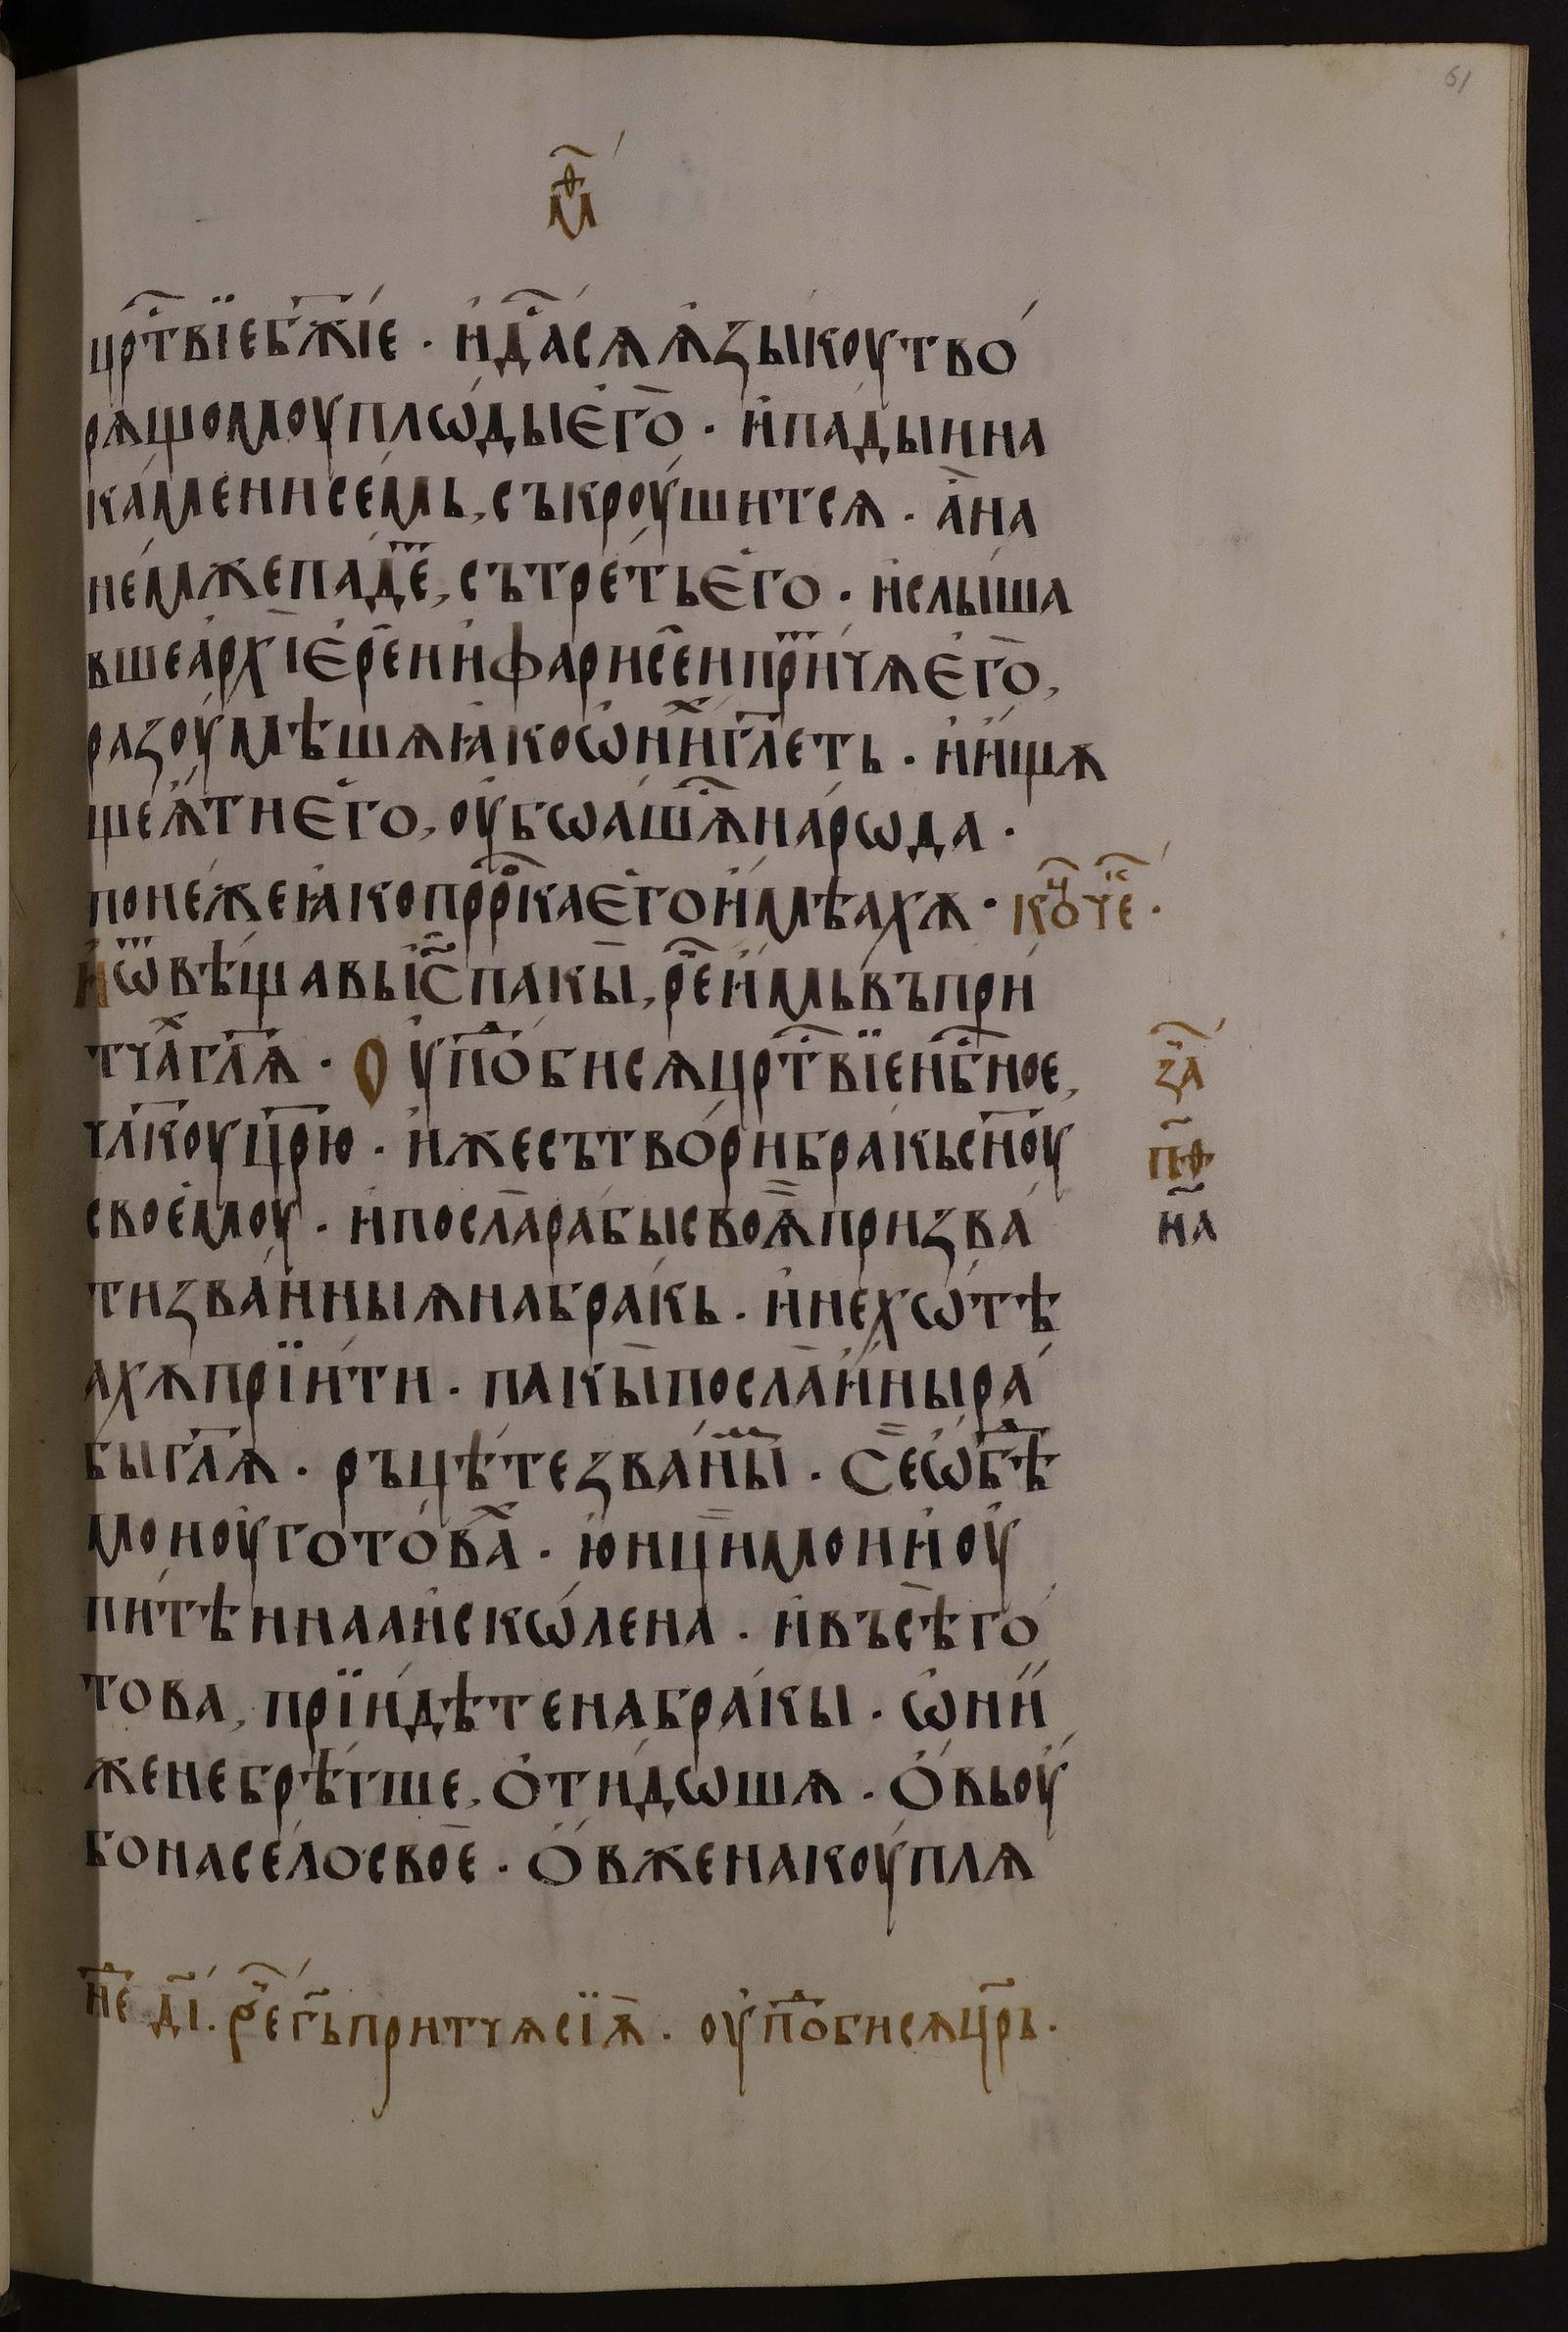 м҃ѳ
цр҃твїеб҃жїе · и҆д҃асѧ ѧ҆зыкоу тво́
рѧщомоу плѡ́ды є҆го̀ · и҆ падыи на
ка́менисе́мь, съкроу́шитсѧ · а҆ на
не́мже паде҃, сътре́ть є҆го · и҆ слы́ша
вше а҆рхїє҆ре́и и҆ фарисе́и при҃чѧ є҆го̀,
разоу́мѣшѧ ꙗ҆ко ѡ҆ ни́х гл҃еть · и҆ и́щѫ
ще ѧ҆́ти є҆го, оу҆бѡа́шѧ нарѡда ·
поне́же ꙗ҆ко прр҃ка є҆го и҆мѣахѫ · ко҃ч҃е ·
и҆ ѿвѣ́щавь і҆с҃ пакы̀, ре҃ и҆мь въ при́
тчах гл҃ѧ · Оу҆по́бисѧ цр҃твїе нб҃ное,
чл҃коу цр҃ю · и҆же сътвори́ бра́кь сн҃оу
своемоу̀ · и҆ посла̀ рабы своѧ̀ призва́
ти зва́нныѧ на бра́кь · и҆ не хѡ́тѣ
ахѫ прїи́ти · пакы̀ посла̀ и҆ны ра́
бы гл҃ѧ · ръцѣ́те зва́ны҃м · Се ѡ҆бѣ҃
мои оу҆гото́вах · ю҆нцѝ мои и҆ оу҆
пи́тѣннаа и҆скѡ́лена · и҆ въсѣ̀ го
това, прїи́дѣте на бра́кы · ѡ҆ни́
же не брѣ́гше, ѻ҆ти́дѡшѧ · ѻ҆́вь оу҆
бо на село̀ своѐ · ѻ҆́вже на коу́плѧ
за҃
пѳ҃
на҃
не҃ ді҃ · ре҃ г҃ь притчѧ сїѧ̀ · оу҆по́бисѧ цр҃ь ·
61